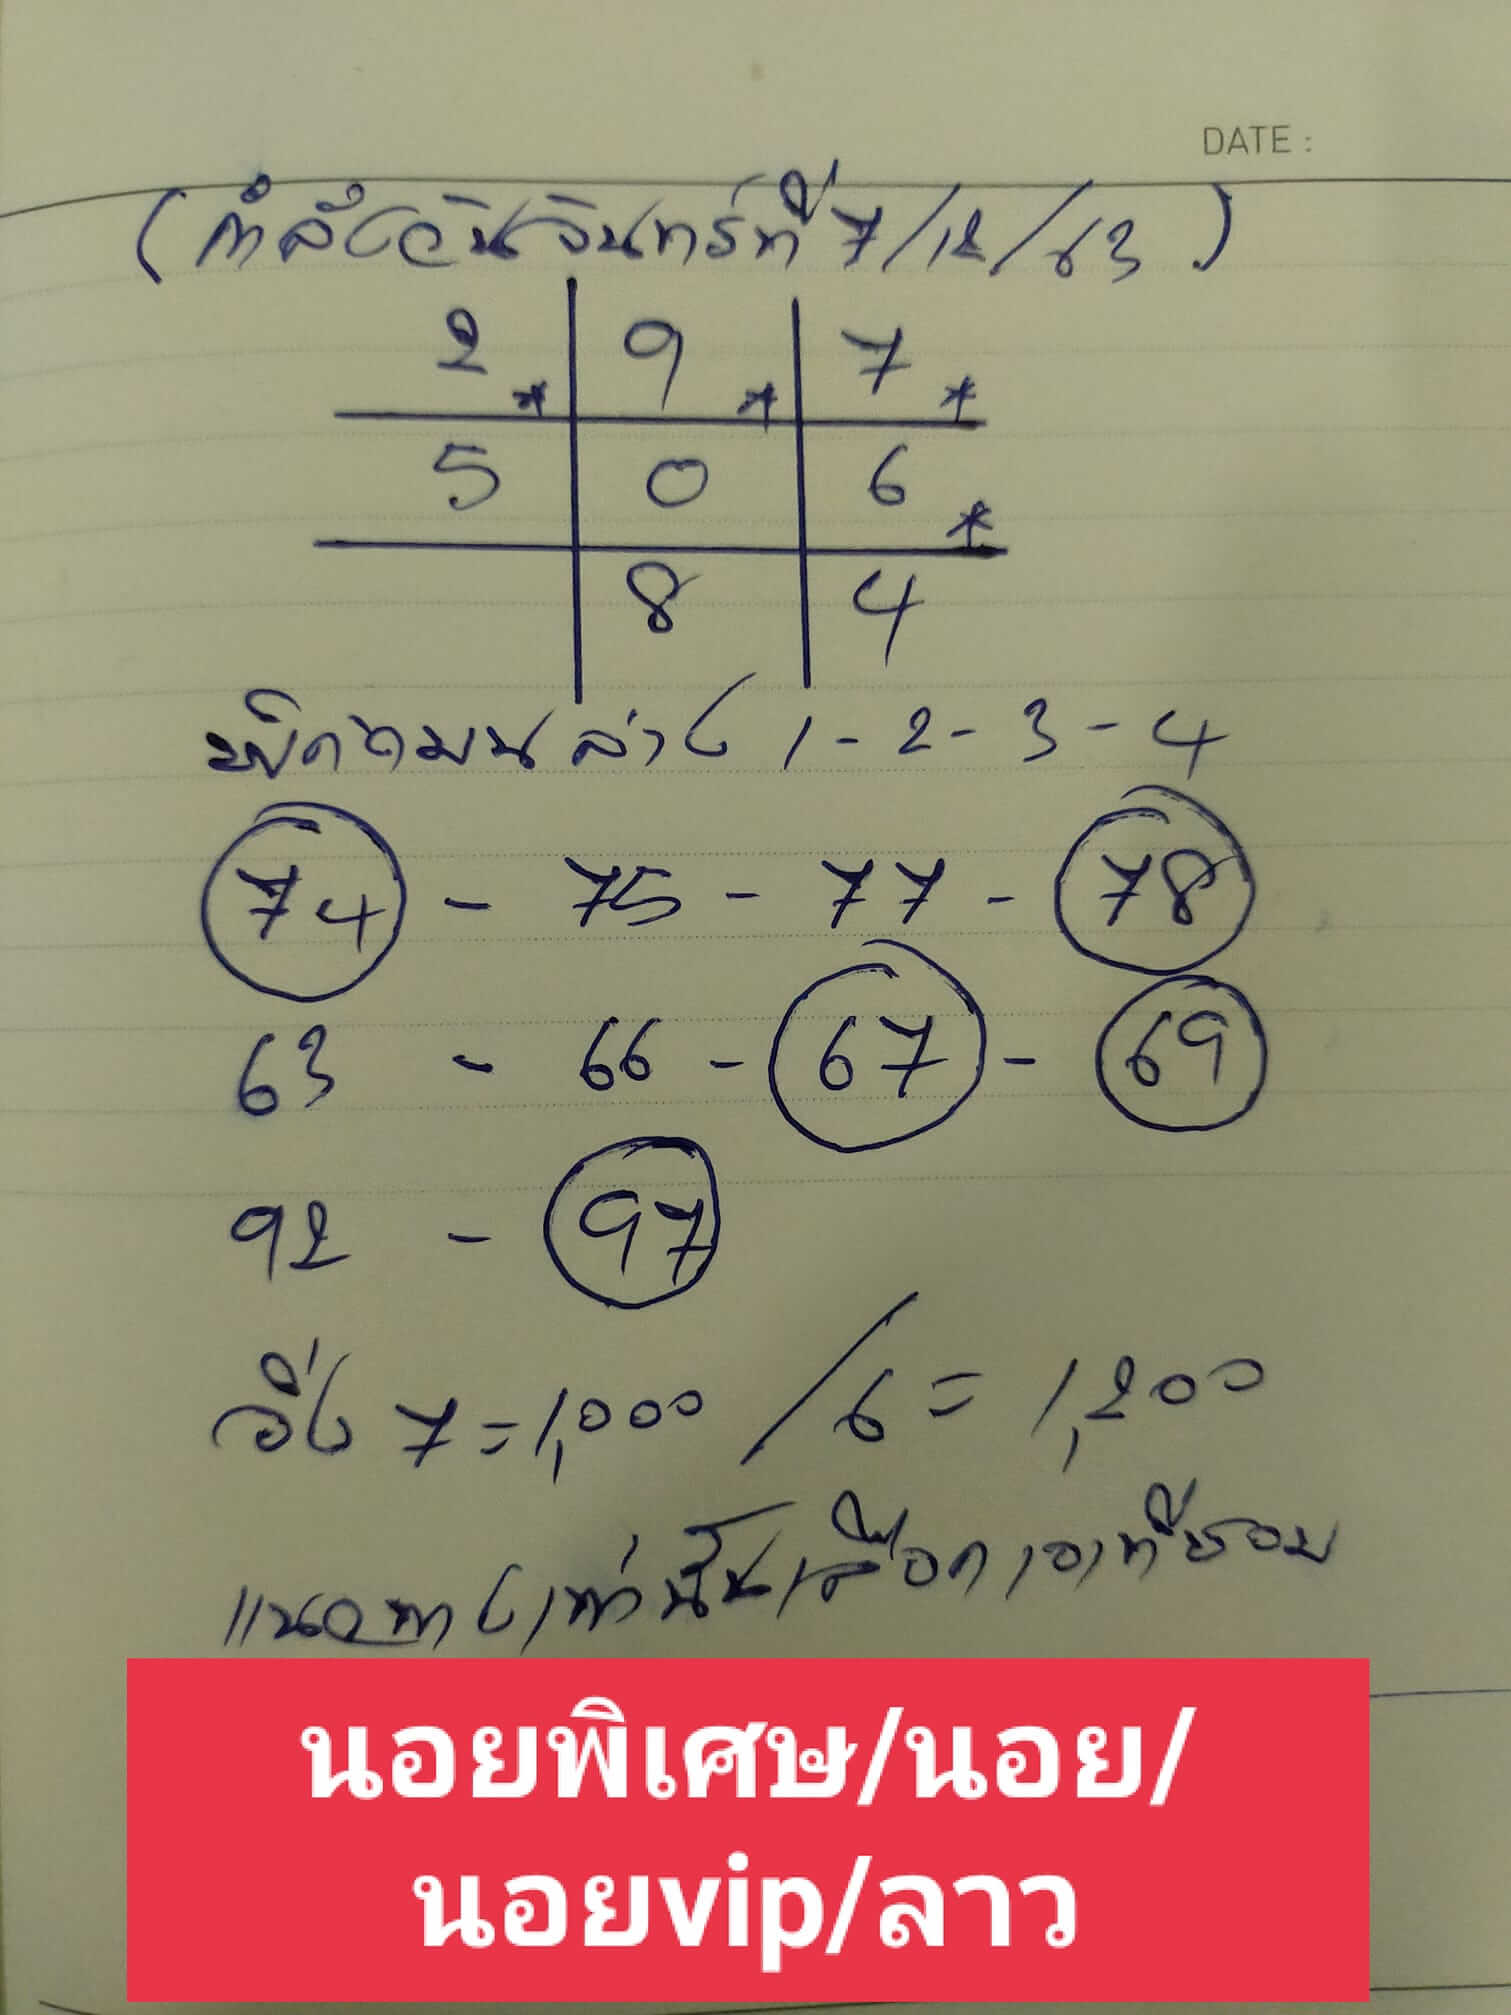 DATE :
(กำลังวันจันทร์ที่ 7/12/63)
2 * 9 * 7 *
5 0 6 *
8 4
พิกัดบนล่าง 1 - 2 - 3 - 4
74 - 75 - 77 - 78
63 - 66 - 67 - 69
92 - 97
วิ่ง 7 = 1,000 / 6 = 1,200
แนวทางเท่านั้นเลือกเอาที่ชอบ
นอยพิเศษ/นอย/
นอยvip/ลาว